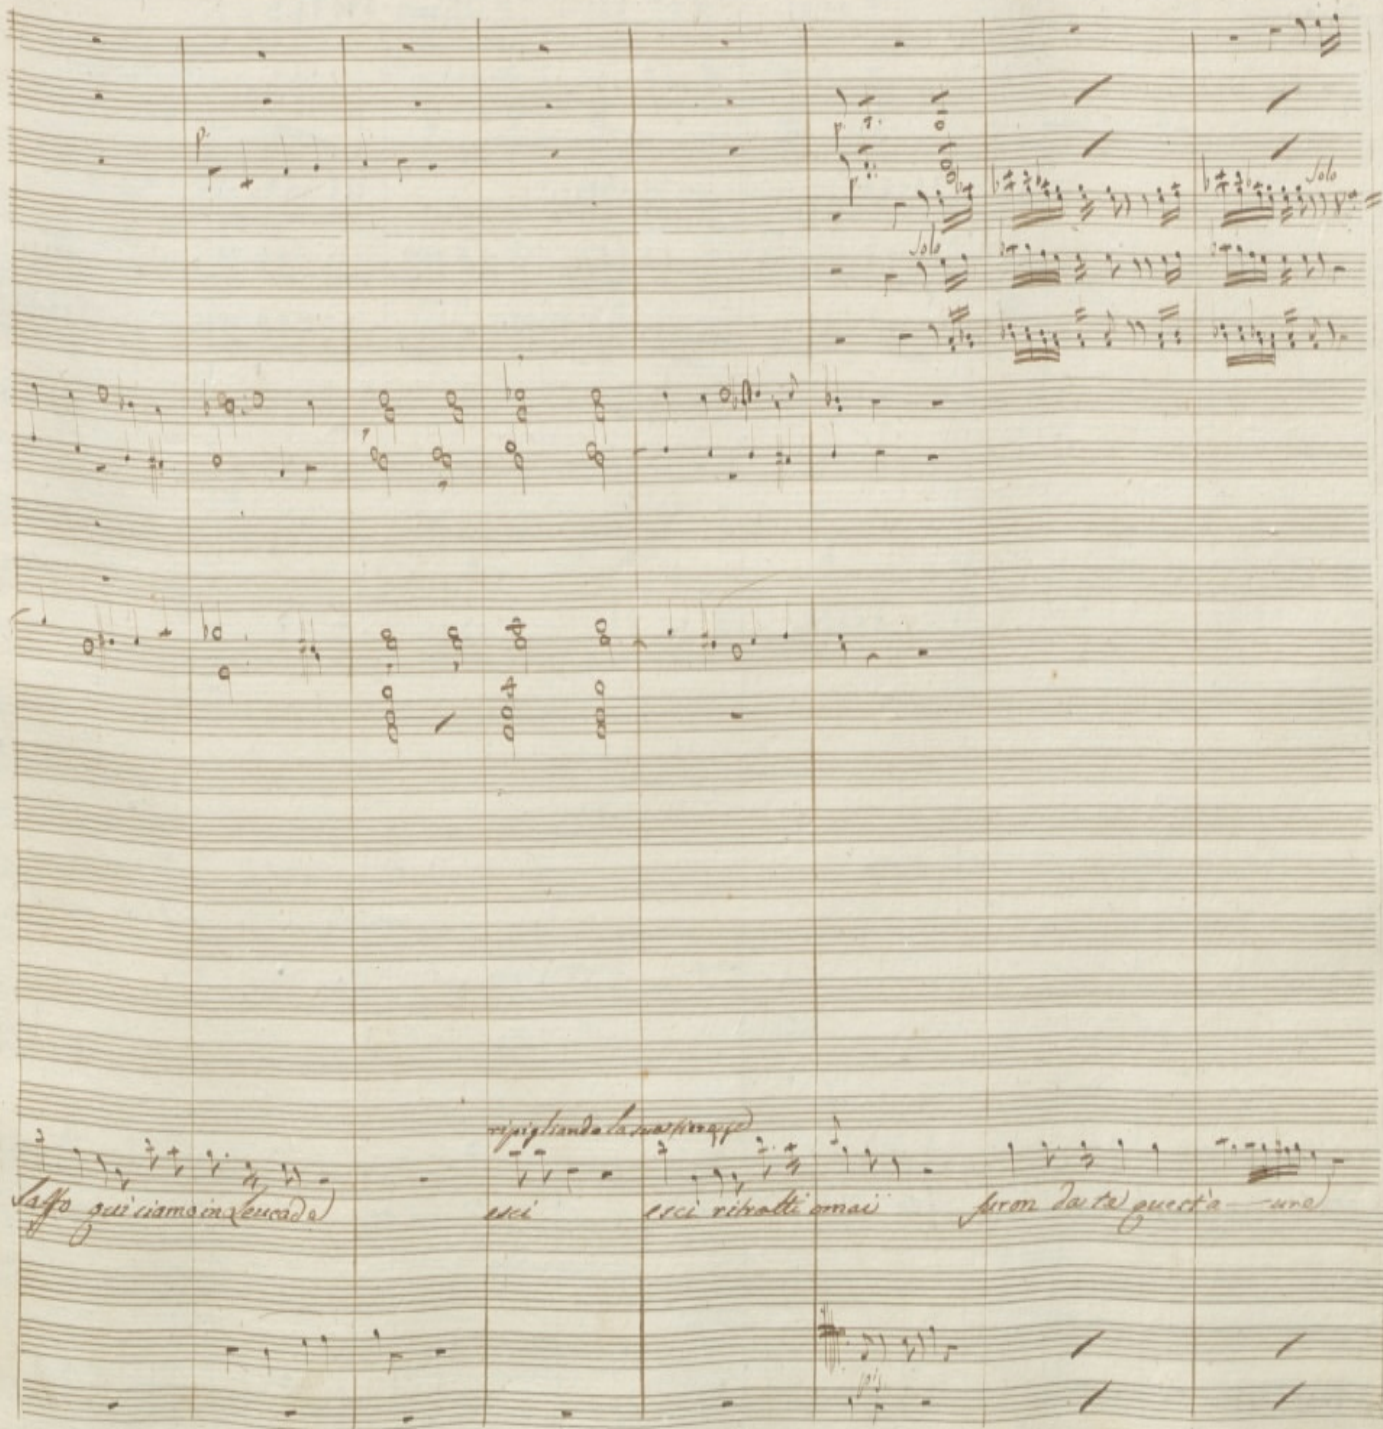 p.
p.
p
Solo
Solo
ripigliando la sua
Saffo qui siamo in Leucade esci esci ritratti omai furon da te quest'a - - ure
pis